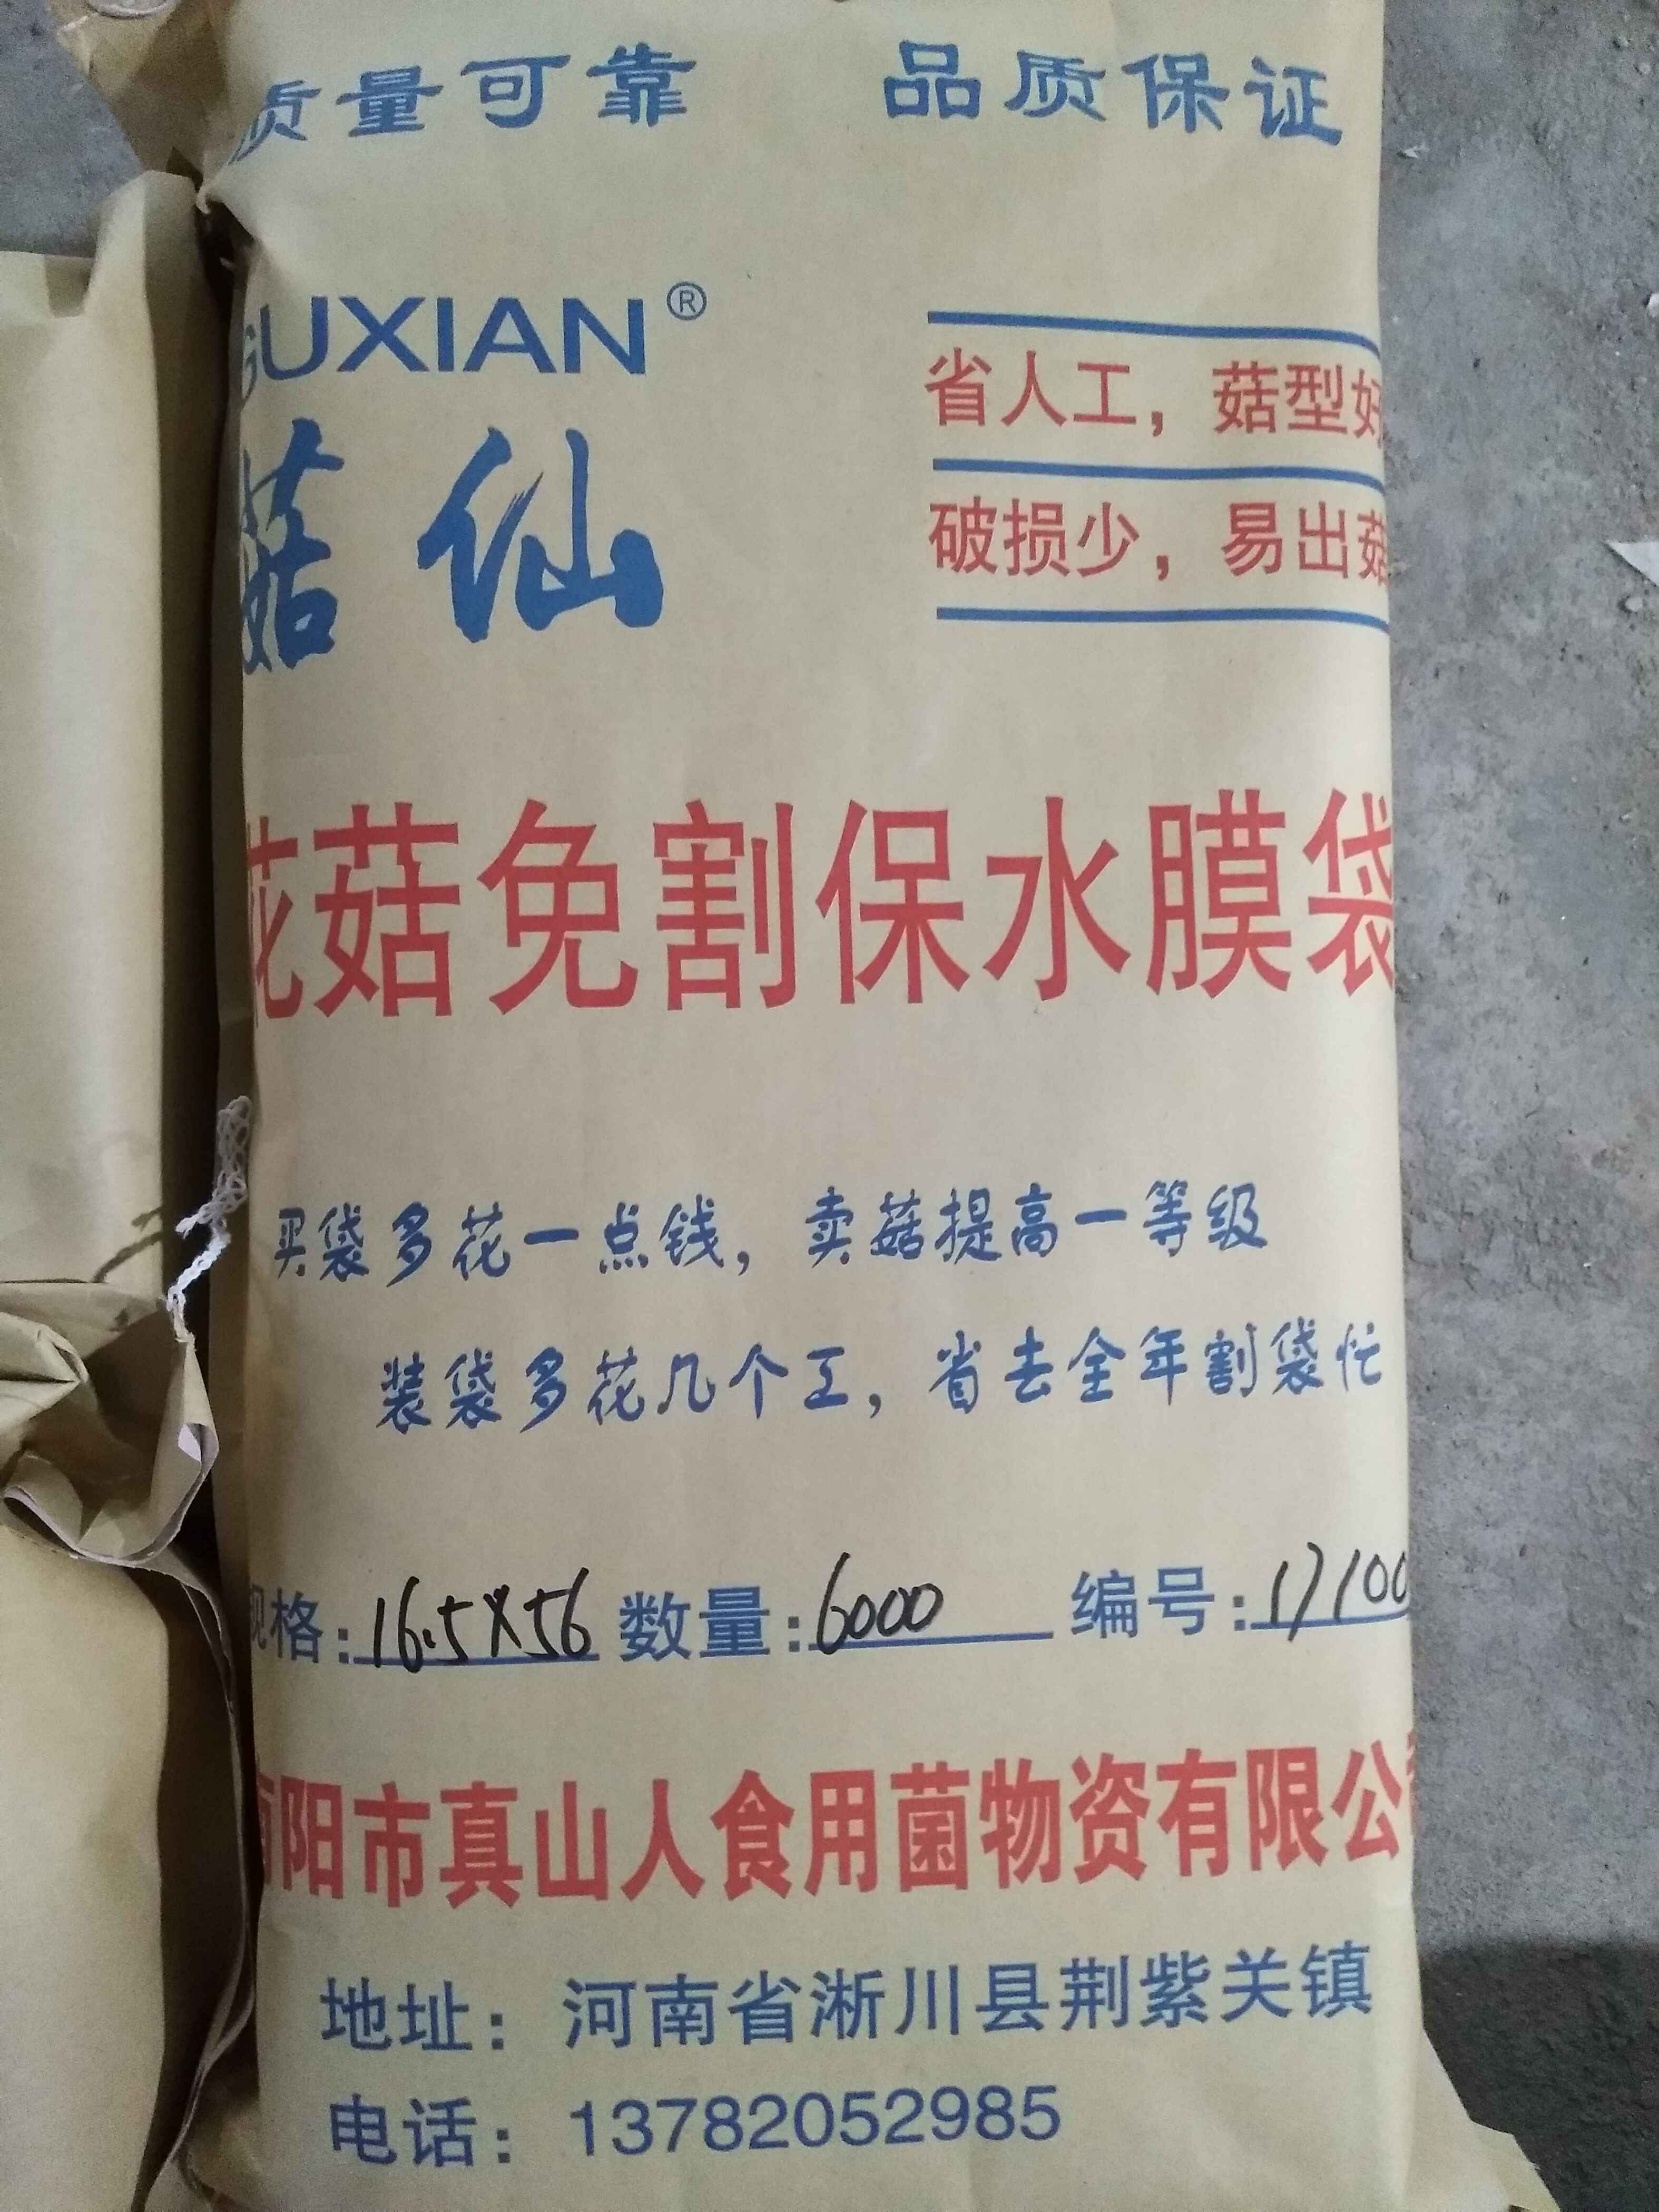 质量可靠 品质保证
GUXIAN®
菇仙
省人工，菇型好
破损少，易出菇
花菇免割保水膜袋
买袋多花一点钱，卖菇提高一等级
装袋多花几个工，省去全年割袋忙
规格：16.5×56 数量：6000 编号：17100
南阳市真山人食用菌物资有限公司
地址：河南省淅川县荆紫关镇
电话：13782052985